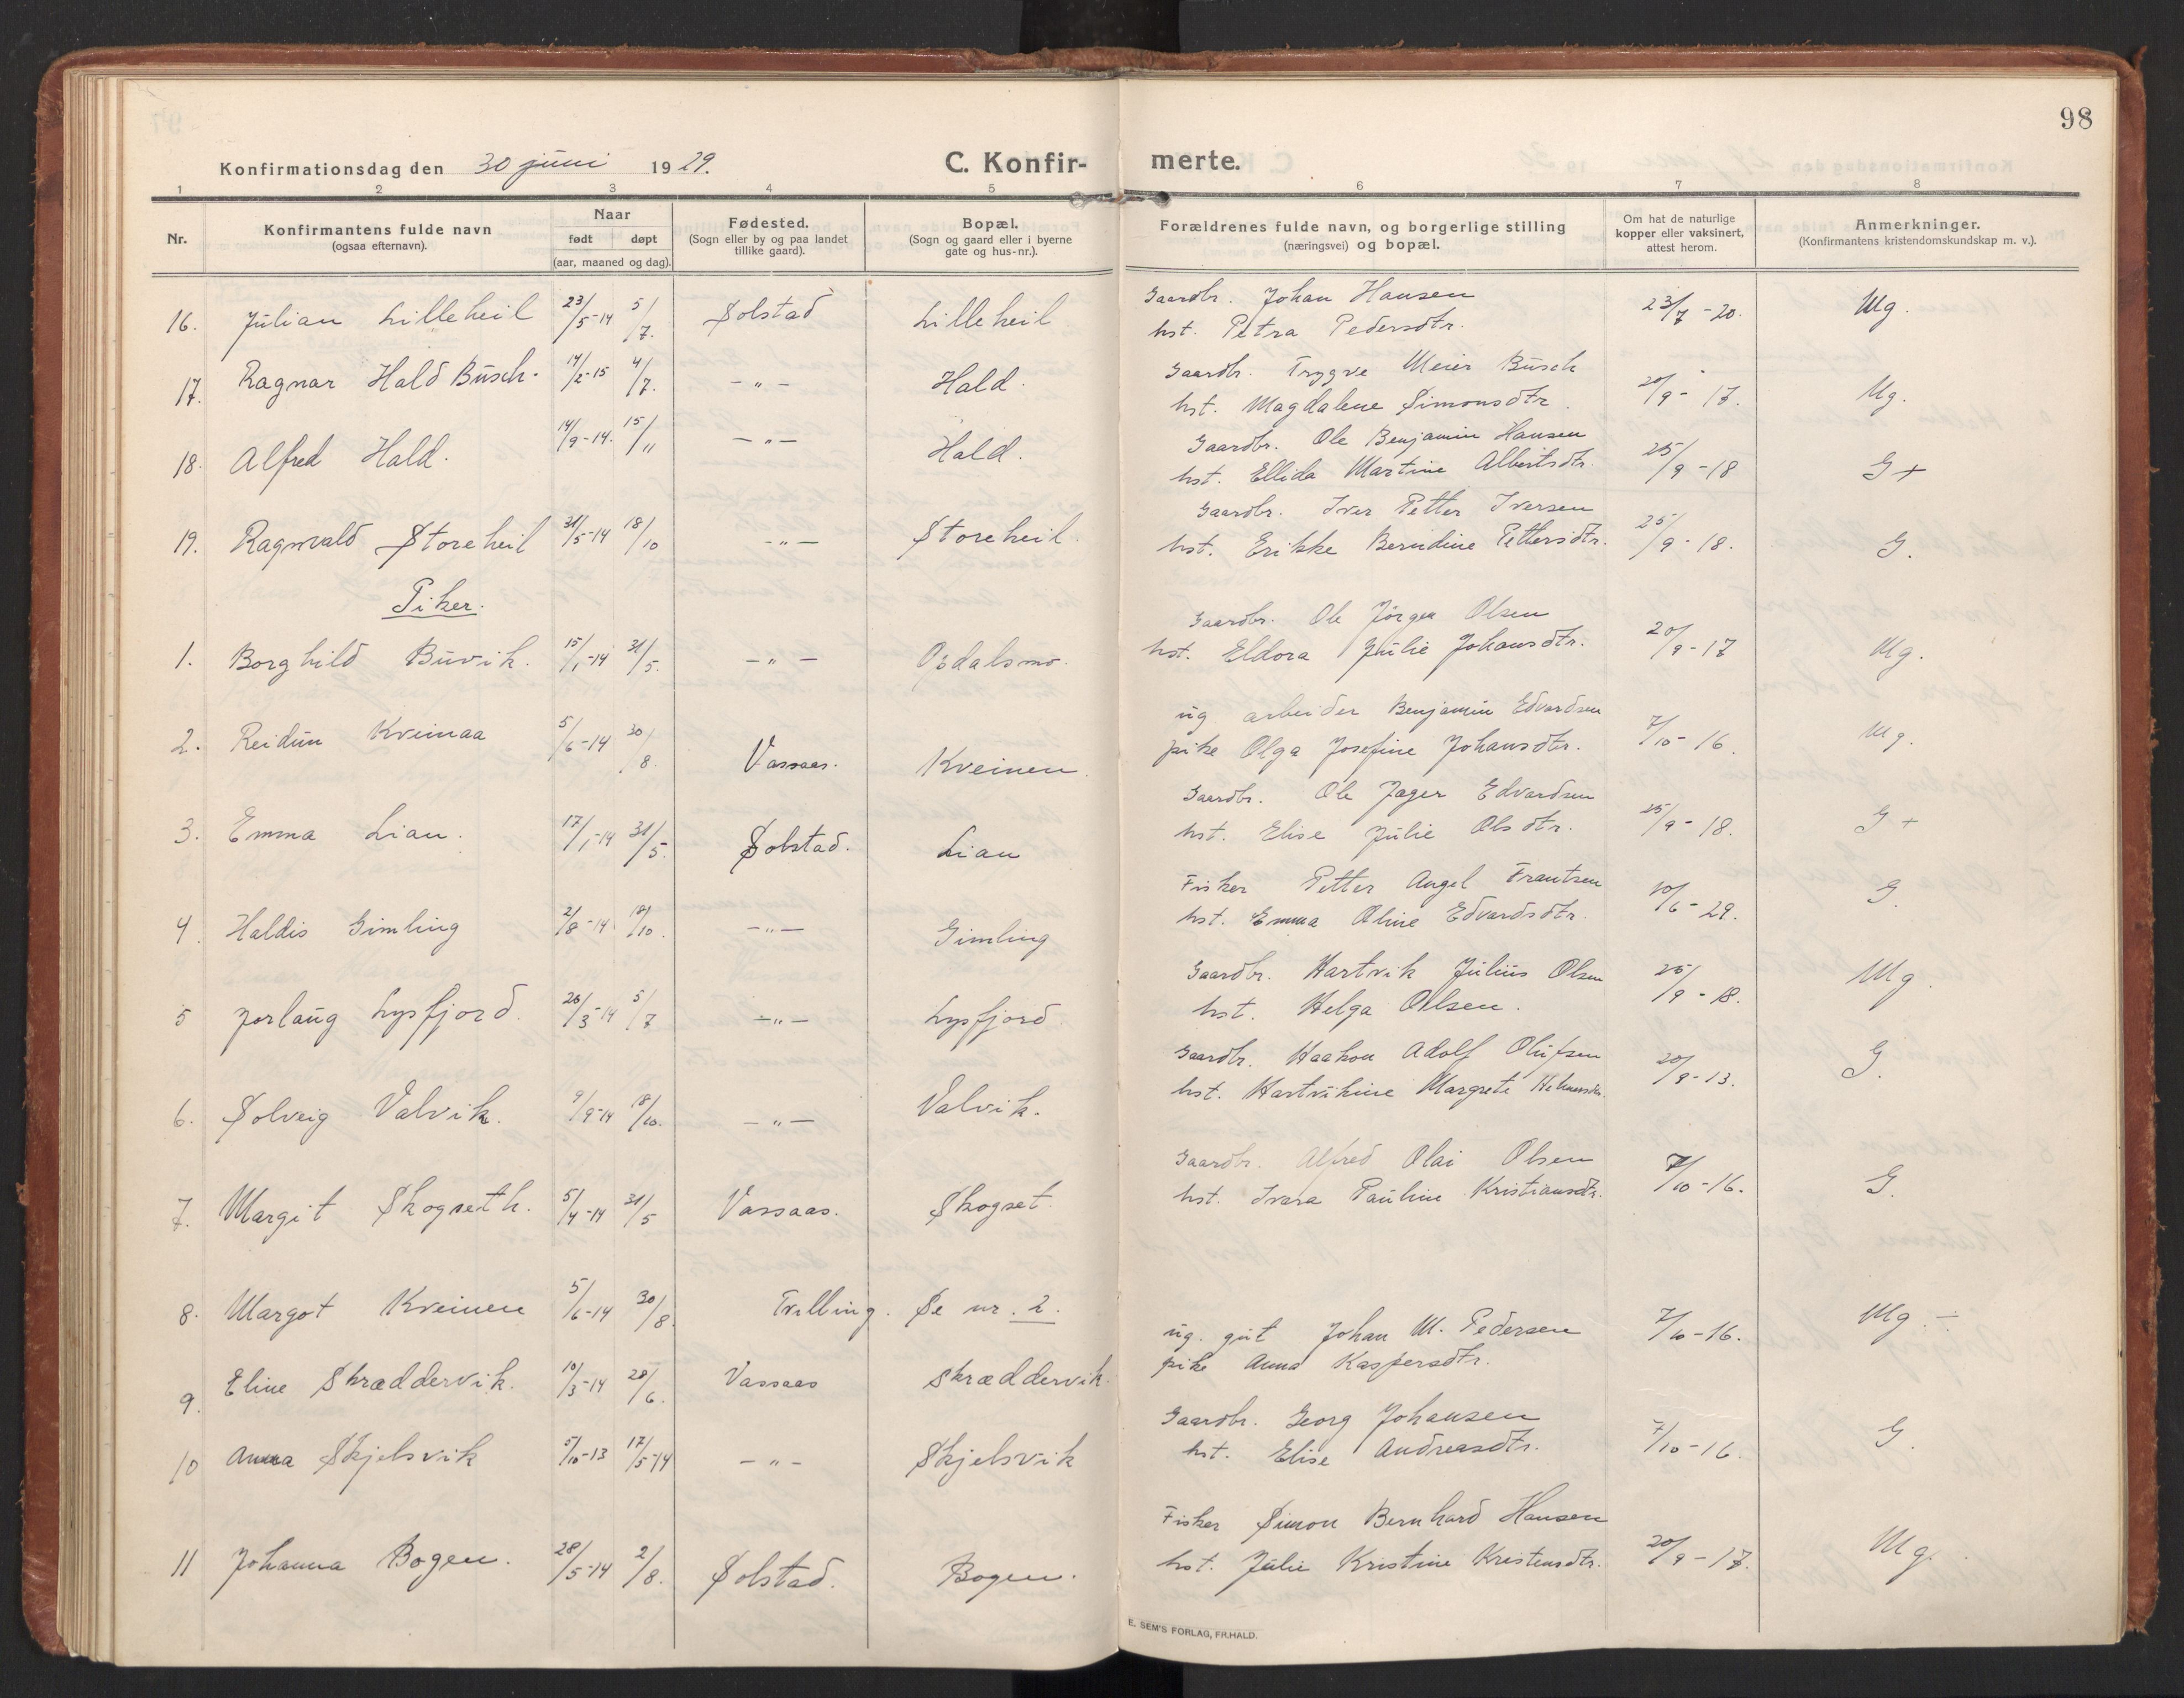 98
Konfirmationsdag den 30 juni 1929. C. Konfirmerte.
1 2 3 4 5 6 7 8
Nr. Konfirmantens fulde navn (ogsaa efternavn). Naar født døpt (aar, maaned og dag). Fødested. (Sogn eller by og paa landet tillike gaard). Bopæl. (Sogn og gaard eller i byerne gate og hus-nr.). Forældrenes fulde navn, og borgerlige stilling (næringsvei) og bopæl. Om hat de naturlige kopper eller vaksinert, attest herom. Anmerkninger. (Konfirmantens kristendomskundskap m. v.).
16. Julian Lilleheil 23/5-14 5/7. Solstad Lilleheil Gaardbr. Johan Hansen 23/7-20. Mg.
hst. Petra Pedersdtr.
17. Ragnar Hald Busch. 14/2-15 4/7. -"- Hald. Gaardb. Trygve Meier Busch 20/9-17. Mg.
hst. Magdalene Simonsdtr.
18. Alfred Hald. 14/9-14. 15/11 -"- Hald. Gaardbr. Ole Benjamin Hansen 25/9-18 G+
hst. Ellida Martine Albertsdtr.
19. Ragnvald Storeheil 31/5-14 18/10 -"- Storeheil. Gaardbr. Iver Petter Iversen 25/9-18. G.
hst. Erikke Berndine Pettersdtr.
Piker.
1. Borghild Buvik. 15/1-14 31/5. -"- Opdalsmo. Gaardbr. Ole Jörgen Olsen 20/9-17 Mg.
hst. Eldora Julie Johansdtr.
2. Reidun Kveinaa 5/6-14 30/8. Vassaas. Kveinen. ug arbeider Benjamin Edvardsen 7/10-16. Mg.
pike Olga Josefine Johansdtr.
3. Emma Lian. 17/1-14 31/5. Solstad. Lian Gaardbr. Ole Jager Edvardsen 25/9-18. G+
hst. Elise Julie Olsdtr.
4. Haldis Gimling 2/8-14 18/10. -"- Gimling Fisker Petter Angel Frantsen 10/6-29. G.
hst. Emma Oline Edvardsdtr.
5 Jorlaug Lysfjord. 26/3-14 5/7 -"- Lysfjord Gaardbr. Hartvik Julius Olsen 25/9-18. Mg.
hst. Helga Olsen.
6. Solveig Valvik. 9/9-14 18/10. -"- Valvik. Gaardbr. Haakon Adolf Olufsen 20/9-13. G.
hst. Hartvikine Margrete
7. Margit Skogseth. 5/4-14 31/5 Vassaas. Skogset. Gaardbr. Alfred Olai Olsen 7/10-16. G.
hst. Ivara Pauline Kristiansdtr.
8. Margot Kveinen 5/6-14 30/8. Tvilling. Se nr. 2.
9. Eline Skræddervik. 10/3-14 28/6. Vassaas Skræddervik. ug. gut Johan M. Pedersen 7/10-16. Mg.-
pike Anna Kaspersdtr.
10 Anna Skjelsvik 5/10-13 17/5-14 -"- Skjelsvik Gaardbr. Georg Johansen 7/10-16. G.
hst. Elise Andreasdtr.
11 Johanna Bogen. 28/5-14 2/8. Solstad. Bogen. Fisker Simon Bernhard Hansen 20/9-17. Mg.
hst. Julie Kristine Kristensdtr.
E. SEM'S FORLAG, FR.HALD.